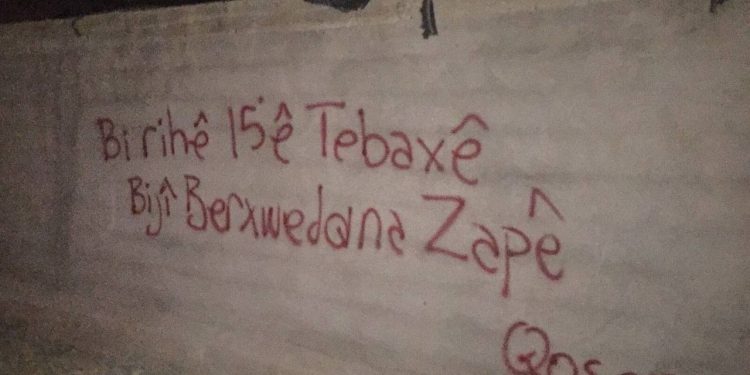 Bi rihê 15'ê Tebaxê
Bijî Berxwedana Zapê